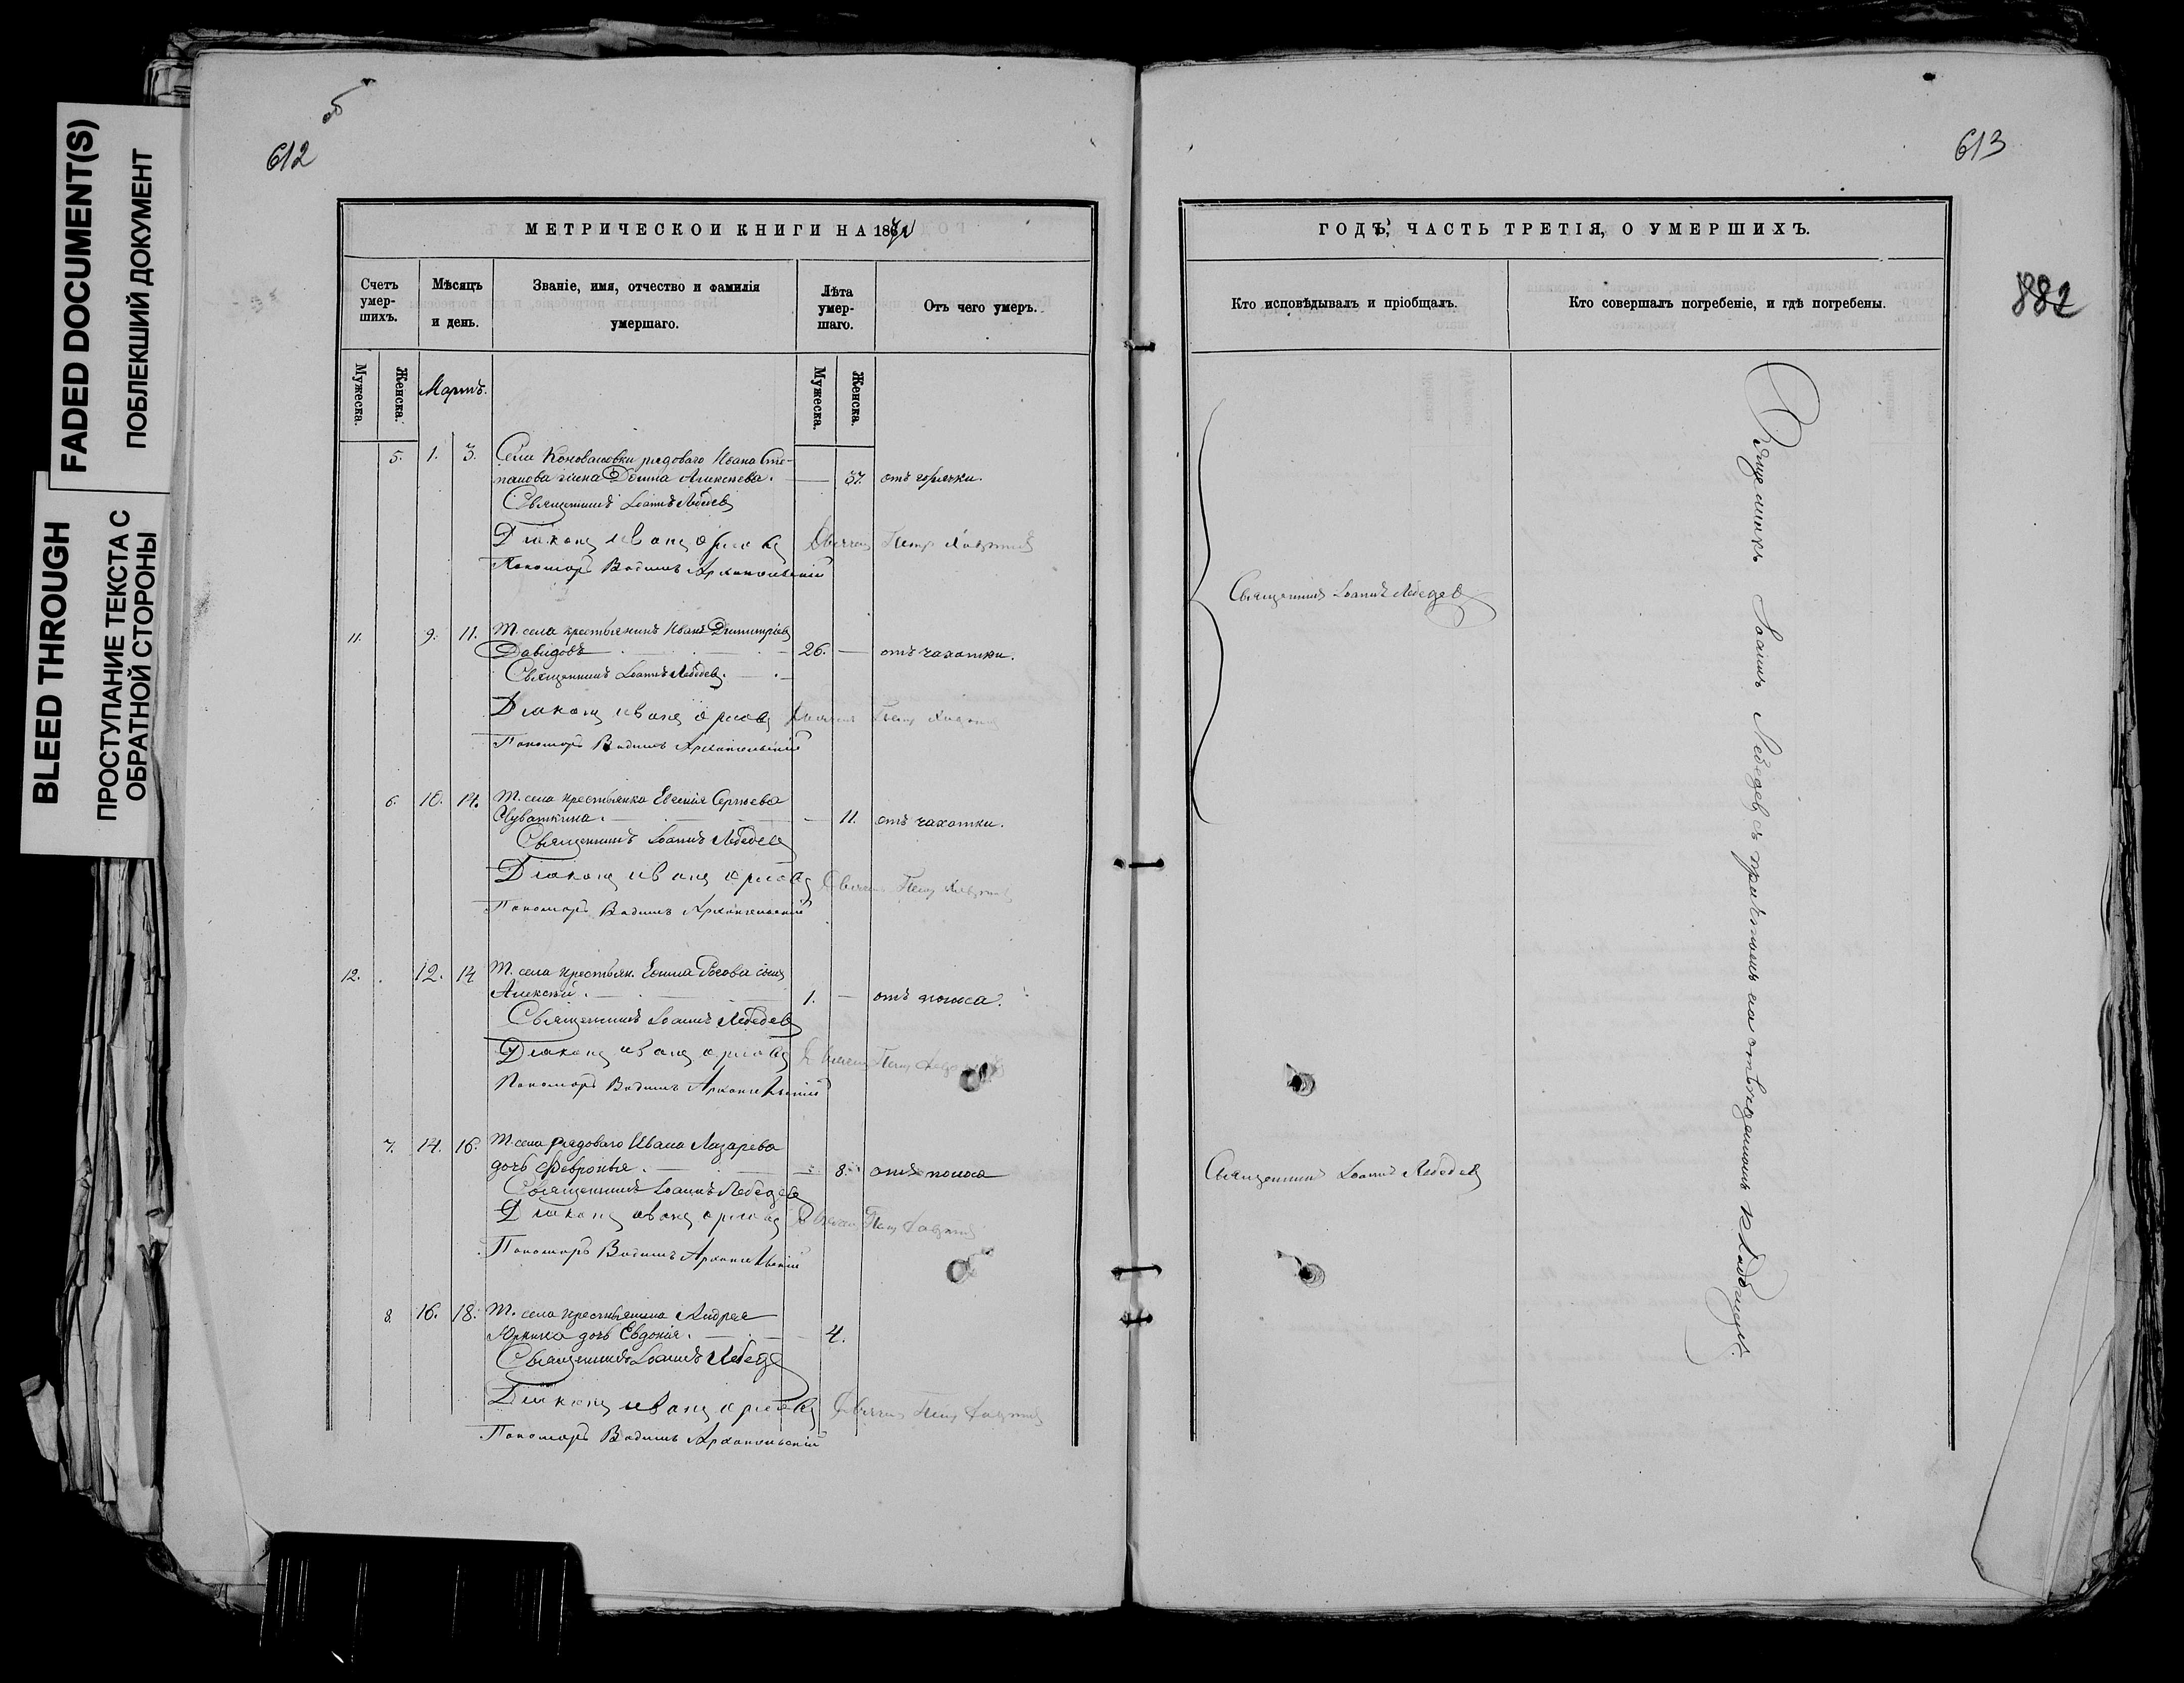 FADED DOCUMENT(S)
ПОБЛЕКШИЙ ДОКУМЕНТ
BLEED THROUGH
ПРОСТУПАНИЕ ТЕКСТА С
ОБРАТНОЙ СТОРОНЫ
об
612
МЕТРИЧЕСКОИ КНИГИ НА 187
Счетъ умер-шихъ.
Мѣсяцъ и день.
Званіе, имя, отчество и фамилія
умершаго.
Лѣта умер-шаго.
Отъ чего умеръ.
Мужеска.
Женска.
Мартъ.
Мужеска.
Женска.
5. 1. 3. Села Коноваловки рядоваго Ивана Сте-
панова жена Домна Алексѣева. 37. отъ горячки.
Священникъ Іоаннъ Лебедевъ
Діаконъ Иванъ Орловъ Петр
Пономарь Вадимъ Архангельскій
11. 9. 11. Т. села крестьянинъ Иванъ Димитріевъ
Давидовъ 26. — отъ чахотки.
Священникъ Іоаннъ Лебедевъ.
Діаконъ Иванъ Орловъ
Пономарь Вадимъ Архангельскій
6. 10. 14. Т. села крестьянка Евгенія Сергѣева
Чуваткина. 11. отъ чахотки.
Священникъ Іоаннъ Лебедевъ
Діаконъ Иванъ Орловъ
Пономарь Вадимъ Архангельскій
12. 12. 14 Т. села крестьян. сынъ
Алексѣй. 1. — отъ поноса.
Священникъ Іоаннъ Лебедевъ
Діаконъ Иванъ Орловъ
Пономарь Вадимъ Архангельскій
7. 14. 16. Т. села рядоваго Ивана Лазарева
дочь Февронья. 8. отъ поноса
Священникъ Іоаннъ Лебедевъ
Діаконъ Иванъ Орловъ
Пономарь Вадимъ Архангельскій
8. 16. 18. Т. села крестьянина Андрея
Юркина дочь Евдокія. 4.
Священникъ Іоаннъ Лебедевъ
Діаконъ Иванъ Орловъ
Пономарь Вадимъ Архангельскій
613
882
ГОДЪ, ЧАСТЬ ТРЕТІЯ, О УМЕРШИХЪ.
Кто исповѣдывалъ и пріобщалъ.
Кто совершалъ погребеніе, и гдѣ погребены.
Священникъ Іоаннъ Лебедевъ
Священникъ Іоаннъ Лебедевъ
Священникъ Іоаннъ Лебедевъ съ причтомъ на отведенномъ кладбищѣ.